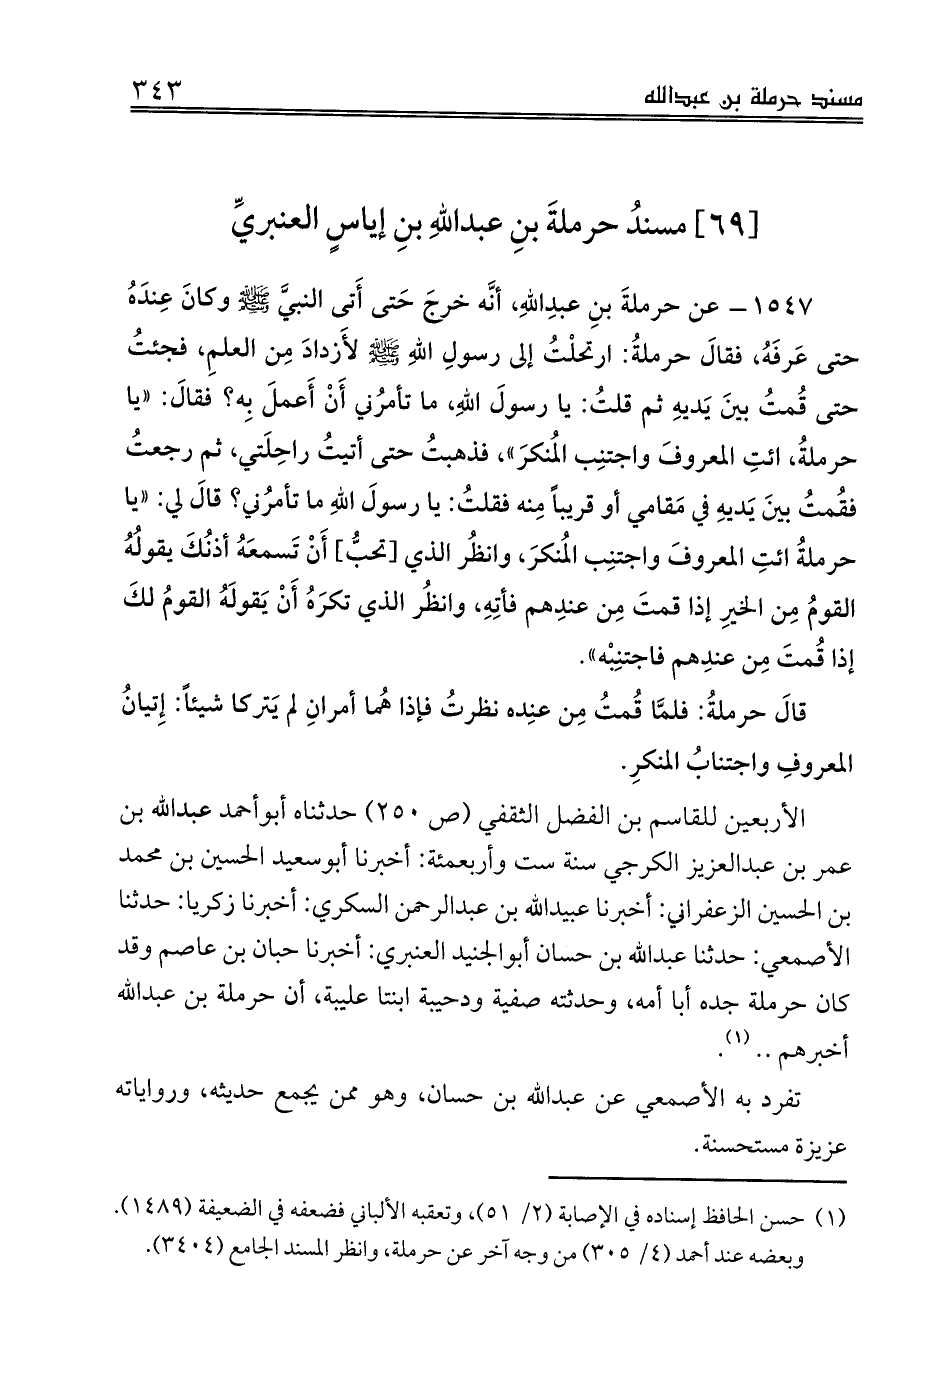 مسند حرملة بن عبدالله
٣٤٣
[٦٩] مسندُ حرملةَ بنِ عبداللهِ بنِ إياسٍ العنبريِّ
١٥٤٧ – عن حرملةَ بنِ عبدِاللهِ، أنَّه خرجَ حَتى أَتى النبيَّ ﷺ وكانَ عِندَهُ
حتى عَرفَهُ، فقالَ حرملةُ: ارتحلْتُ إلى رسولِ اللهِ ﷺ لأَزدادَ مِن العلمِ، فجئتُ
حتى قُمتُ بينَ يَديهِ ثم قلتُ: يا رسولَ اللهِ، ما تأمرُني أَنْ أَعملَ بِه؟ فقالَ: «يا
حرملةُ، ائتِ المعروفَ واجتنِب المُنكرَ»، فذهبتُ حتى أتيتُ راحِلَتي، ثم رجعتُ
فقُمتُ بينَ يَديهِ في مَقامي أو قريباً مِنه فقلتُ: يا رسولَ اللهِ ما تأمرُني؟ قالَ لي: «يا
حرملةُ ائتِ المعروفَ واجتنِب المُنكرَ، وانظُر الذي [تحبُّ] أَنْ تَسمعَهُ أذنُكَ يقولُهُ
القومُ مِن الخيرِ إذا قمتَ مِن عندِهم فأتِهِ، وانظُر الذي تكرَهُ أَنْ يَقولَهُ القومُ لكَ
إذا قُمتَ مِن عندِهم فاجتنِبْه».
قالَ حرملةُ: فلمَّا قُمتُ مِن عنِده نظرتُ فإذا هُما أمرانِ لم يَتركا شيئاً: إتيانُ
المعروفِ واجتنابُ المنكرِ.
الأربعين للقاسم بن الفضل الثقفي (ص ٢٥٠) حدثناه أبوأحمد عبدالله بن
عمر بن عبدالعزيز الكرجي سنة ست وأربعمئة: أخبرنا أبوسعيد الحسين بن محمد
بن الحسين الزعفراني: أخبرنا عبيدالله بن عبدالرحمن السكري: أخبرنا زكريا: حدثنا
الأصمعي: حدثنا عبدالله بن حسان أبوالجنيد العنبري: أخبرنا حبان بن عاصم وقد
كان حرملة جده أبا أمه، وحدثته صفية ودحيبة ابنتا عليبة، أن حرملة بن عبدالله
أخبرهم .. (١).
تفرد به الأصمعي عن عبدالله بن حسان، وهو ممن يجمع حديثه، ورواياته
عزيزة مستحسنة.
(١) حسن الحافظ إسناده في الإصابة (٢/ ٥١)، وتعقبه الألباني فضعفه في الضعيفة (١٤٨٩).
وبعضه عند أحمد (٤/ ٣٠٥) من وجه آخر عن حرملة، وانظر المسند الجامع (٣٤٠٤).